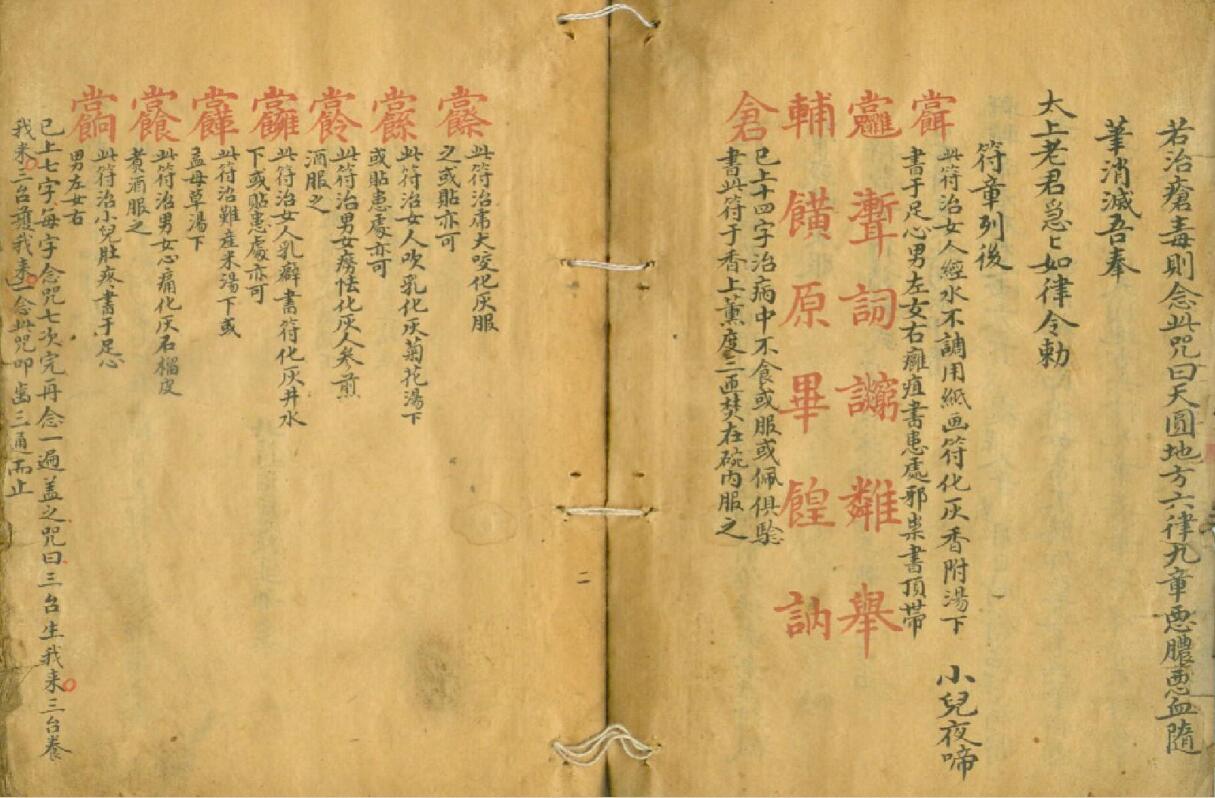 若治瘡毒則念此咒曰天圓地方六律九章惡膿惡血隨
筆消滅吾奉
太上老君急ヒ如律令勅
符章列後
此符治女人經水不調用紙画符化灰香附湯下 小兒夜啼
書于足心男左女右癰疽書患處邪祟書頂帶
詞 舉
輔 原畢餭訥
倉
已上十四字治病中不食或服或佩俱驗
書此符于香上薰度三匝焚在碗内服之
二
此符治虎犬咬化灰服
之或貼亦可
此符治女人吹乳化灰菊花湯下
或貼患處亦可
此符治男女癆怯化灰人參煎
酒服之
此符治女人乳癖書符化灰井水
下或貼患處亦可
此符治難産米湯下或
益母草湯下
此符治男女心痛化灰石榴皮
煮酒服之
此符治小兒肚疼書于足心
男左女右
已上七字每字念咒七次完再念一遍盖之咒曰三台生我来三台養
我来三台護我来念此咒叩齒三通而止